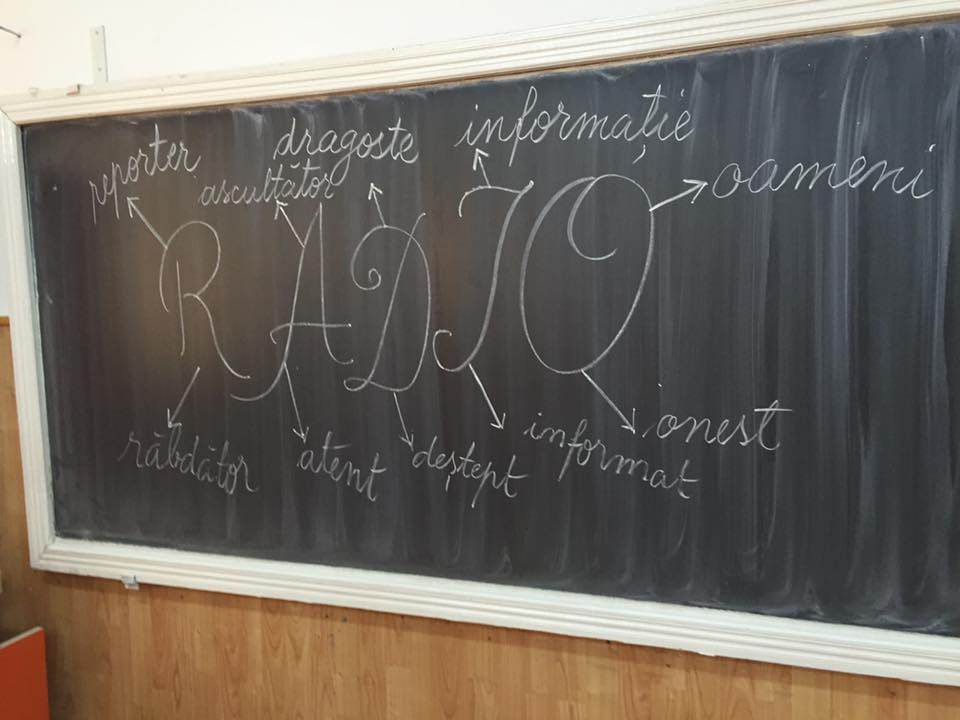 reporter dragoste informație
ascultător oameni
RADIO
răbdător atent deștept informat onest